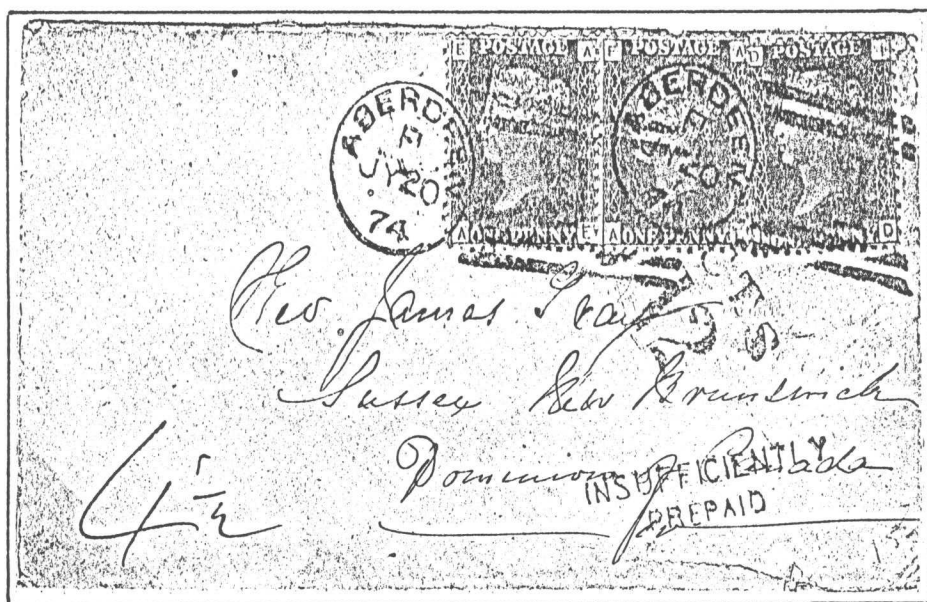 E POSTAGE A F POSTAGE A D POSTAGE
A ONE PENNY E A ONE PENNY D
ABERDEEN
A
JY 20
74
ABERDEEN
20
Rev. James
Sussex New Brunswick
Dominion of Canada
INSUFFICIENTLY
PREPAID
4 1/2